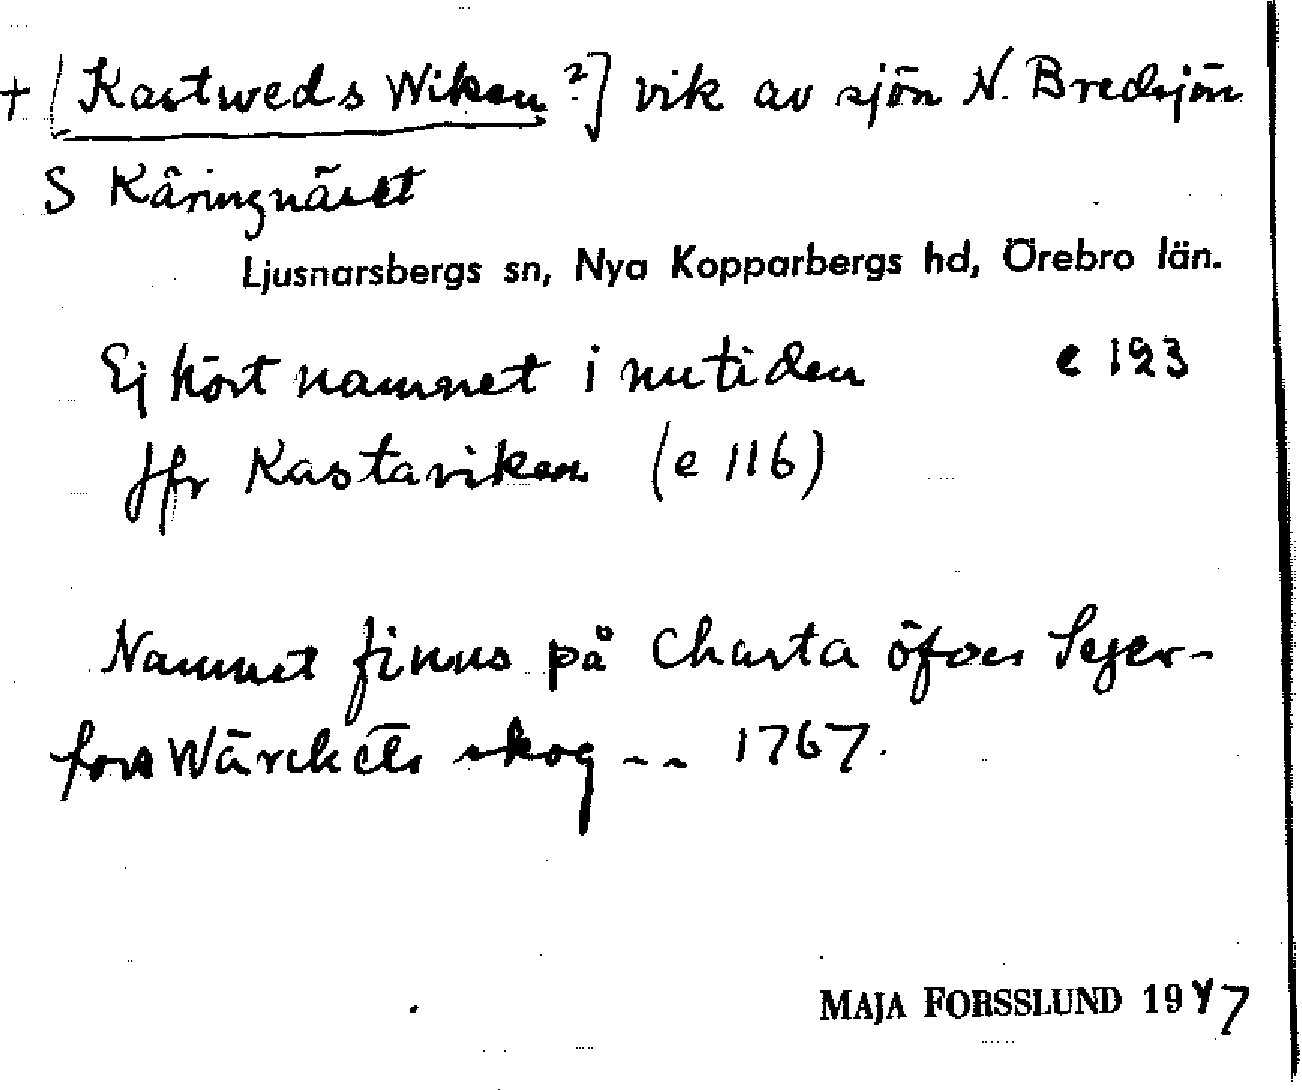 + [Kastweds Wiken ?] vik av sjön N. Bredsjön
S Käringnäset
Ljusnarsbergs sn, Nya Kopparbergs hd, Örebro län.
Ej hört namnet i nutiden e 123
Jfr Kastaviken (e 116)
Namnet finns på Charta öfver Seger-
fors Wärckets skog -- 1767.
MAJA FORSSLUND 1947